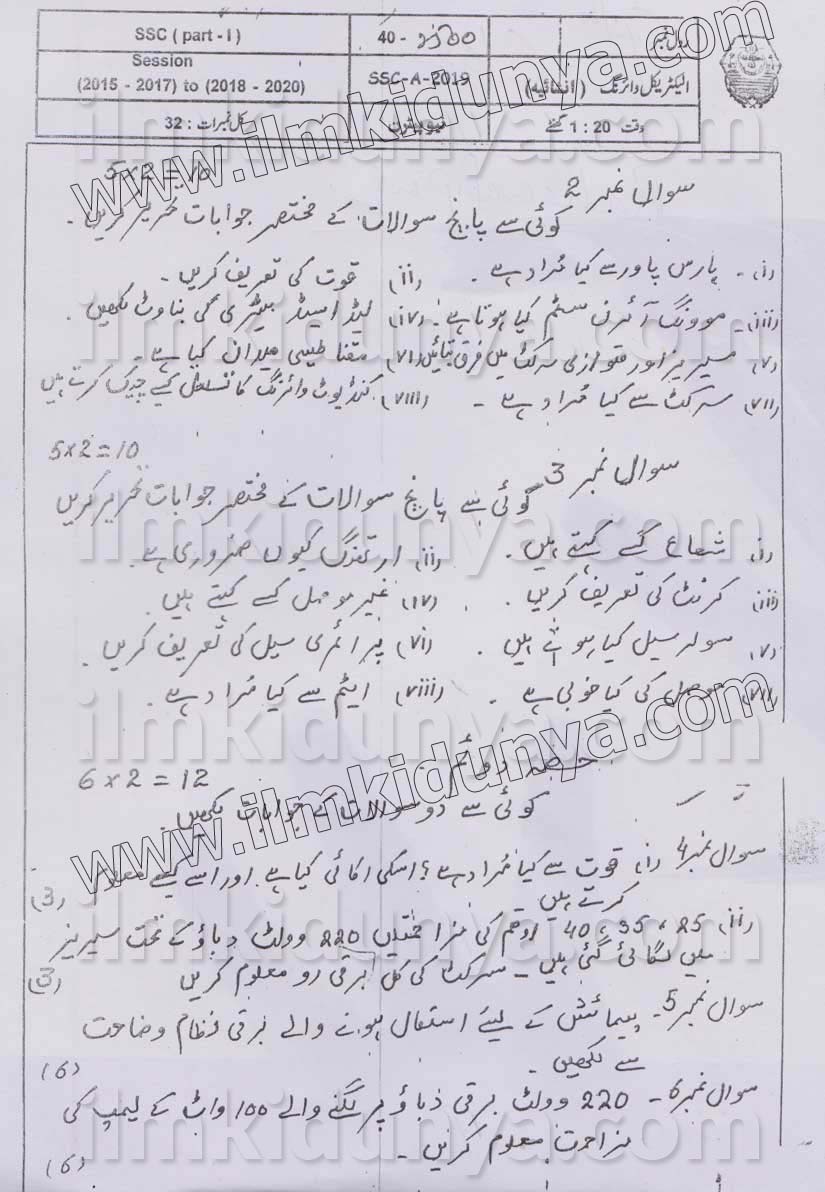 رول نمبر 40 - SSC ( part - I )
الیکٹریکل وائرنگ ( انشائیہ ) SSC-A-2019 Session (2015 - 2017) to (2018 - 2020)
وقت 1 : 20 گھنٹے کل نمبرات : 32
سوال نمبر 2 5x2 = 10
کوئی سے پانچ سوالات کے مختصر جوابات تحریر کریں۔
(i)۔ ہارس پاور سے کیا مُراد ہے ۔ (ii) قوت کی تعریف کریں ۔
(iii)۔ موونگ آئرن سسٹم کیا ہوتا ہے۔ (iv) لیڈ ایسڈ بیٹری کی بناوٹ لکھیں ۔
(v) سیریز اور متوازی سرکٹ میں فرق بتائیں (vi) مقناطیسی میدان کیا ہے ۔
(vii) سرکٹ سے کیا مُراد ہے ۔ (viii) کنڈیوٹ وائرنگ کا تسلسل کیسے چیک کرتے ہیں
سوال نمبر 3 5x2=10
کوئی سے پانچ سوالات کے مختصر جوابات تحریر کریں
(i) شعاع کسے کہتے ہیں ۔ (ii) ارتھنگ کیوں ضروری ہے ۔
(iii) کرنٹ کی تعریف کریں ۔ (iv) غیر موصل کسے کہتے ہیں ۔
(v) سولر سیل کیا ہوتے ہیں ۔ (vi) پرائمری سیل کی تعریف کریں ۔
(vii) موصل کی کیا خوبی ہے ۔ (viii) ایٹم سے کیا مُراد ہے ۔
حصہ دوئم
6x2 = 12
کوئی سے دو سوالات کے جوابات لکھیں ۔
سوال نمبر 4 (i) قوت سے کیا مُراد ہے ؟ اسکی اکائی کیا ہے اور اسے کیسے معلوم
کرتے ہیں ۔ (3)
(ii) 25 ، 35 ، 40 اوھم کی مزاحمتیں 220 وولٹ دباؤ کے تحت سیریز
میں لگائی گئی ہیں ۔ سرکٹ کی کل برقی رو معلوم کریں (3)
سوال نمبر 5۔ پیمائش کے لیئے استعمال ہونے والے برقی نظام وضاحت
سے لکھیں ۔ (6)
سوال نمبر 6 ۔ 220 وولٹ برقی دباؤ پر لگنے والے 100 واٹ کے لیمپ کی
مزاحمت معلوم کریں ۔ (6)
www.ilmkidunya.com
ilmkidunya.com